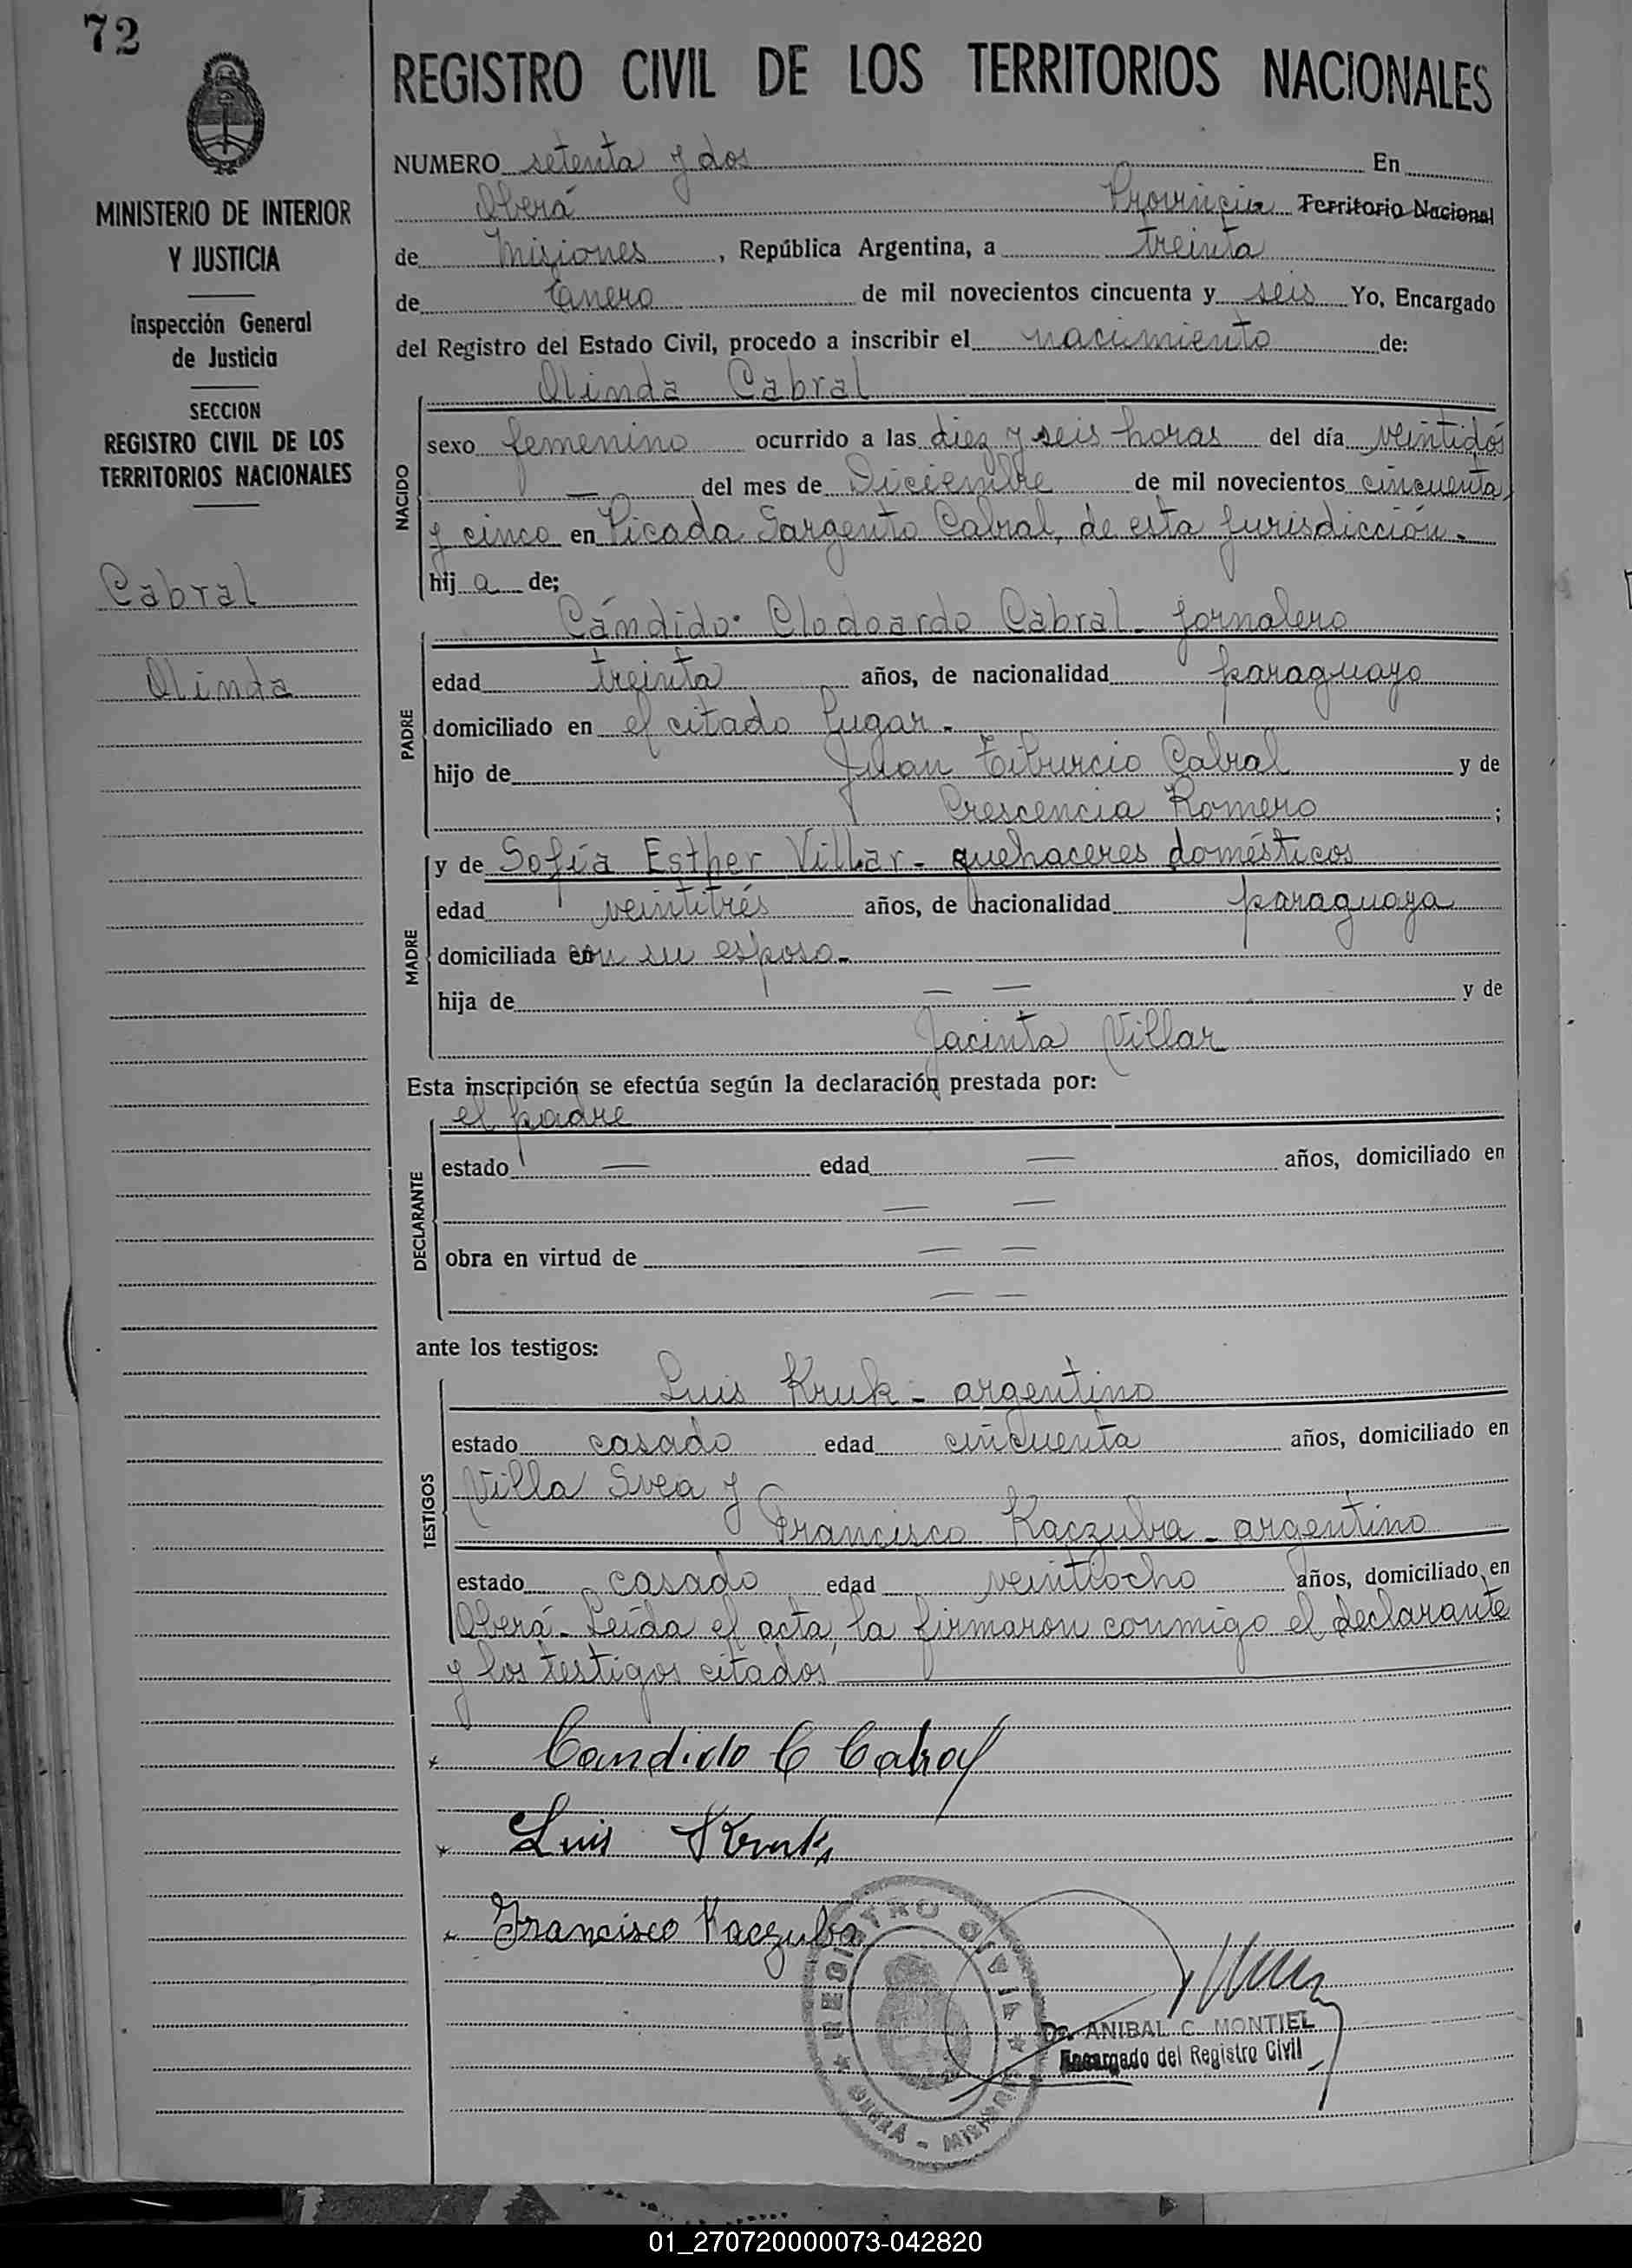 72
REGISTRO CIVIL DE LOS TERRITORIOS NACIONALES
MINISTERIO DE INTERIOR
Y JUSTICIA
Inspección General
de Justicia
SECCION
REGISTRO CIVIL DE LOS
TERRITORIOS NACIONALES
Cabral
Olinda
NUMERO setenta y dos En
Oberá Provincia Territorio Nacional
de Misiones, República Argentina, a treinta
de Enero de mil novecientos cincuenta y seis Yo, Encargado
del Registro del Estado Civil, procedo a inscribir el nacimiento de:
Olinda Cabral
NACIDO
sexo femenino ocurrido a las diez y seis horas del día veintidós
— del mes de Diciembre de mil novecientos cincuenta
y cinco en Picada Sargento Cabral, de esta jurisdicción.-
hij a de;
Cándido Clodoardo Cabral - jornalero
PADRE
edad treinta años, de nacionalidad paraguayo
domiciliado en el citado lugar.-
hijo de Juan Tiburcio Cabral y de
Crescencia Romero ;
MADRE
y de Sofía Esther Villar - quehaceres domésticos
edad veintitrés años, de nacionalidad paraguaya
domiciliada con su esposo.-
hija de — — y de
Jacinta Villar
Esta inscripción se efectúa según la declaración prestada por:
el padre
DECLARANTE
estado — edad — años, domiciliado en
— —
obra en virtud de — —
— —
ante los testigos:
TESTIGOS
Luis Kruk - argentino
estado casado edad cincuenta años, domiciliado en
Villa Svea y
Francisco Kaczuba - argentino
estado casado edad veintiocho años, domiciliado en
Oberá - Leída el acta, la firmaron conmigo el declarante
y los testigos citados
Candido C Cabral
Luis Kruk
Francisco Kaczuba
REGISTRO CIVIL
OBERÁ - MISIONES
Dr. ANIBAL C. MONTIEL
Encargado del Registro Civil
01_270720000073-042820